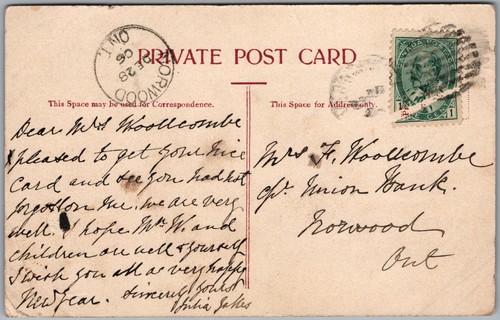 NORWOOD
DE 28
06
ONT.
PRIVATE POST CARD
This Space may be used for Correspondence.
This Space for Address only.
1
1
Dear Mrs Woollcombe
pleased to get your nice
card and see you had not
forgotten me. we are very
well. I hope Mr W. and
children are well & yourself
I wish you all a very happy
New Year. Sincerely yours
Julia Jakes
Mrs F. Woollcombe
c/o Union Bank.
Norwood
Ont